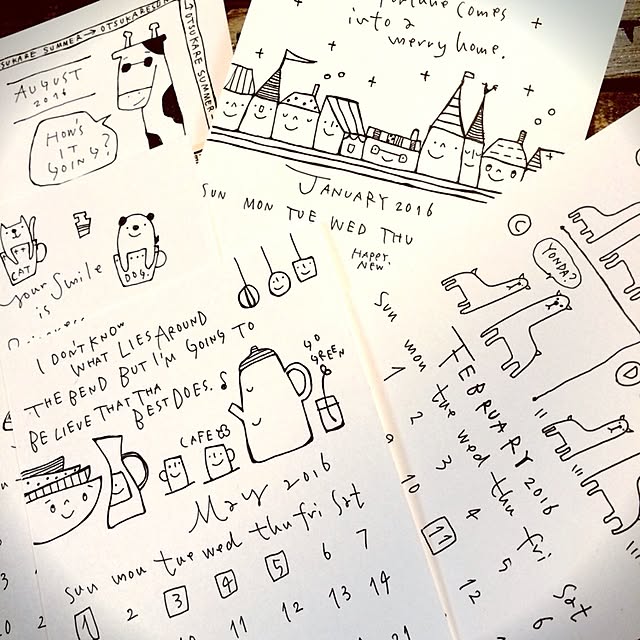 OTSUKARE SUMMER → OTSUKARESUM
OTSUKARE SUMMER
AUGUST
2016
HOW'S
IT
GOING?
CAT
DOG
your smile
is
fortune comes
into a
merry home.
JANUARY 2016
SUN MON TUE WED THU
HAPPY
NEW
I DON'T KNOW
WHAT LIES AROUND
THE BEND BUT I'M GOING TO
BELIEVE THAT THA
BEST DOES.
GO
GREEN
CAFE
May 2016
sun mon tue wed thu fri sat
1 2 3 4 5 6 7
10 11 12 13 14
21
C
YONDA?
D
FEBRUARY 2016
sun mon tue wed thu fri sat
1 2 3 4 5 6
10 11 12